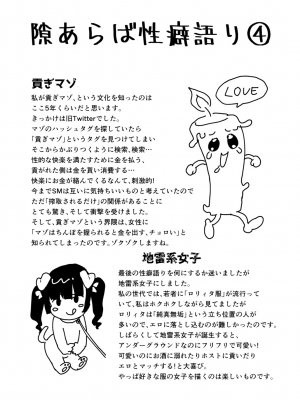 隙あらば性癖語り④
貢ぎマゾ
私が貢ぎマゾ、という文化を知ったのは
ここ5年くらいだと思います。
きっかけは旧Twitterでした。
マゾのハッシュタグを探していたら
「貢ぎマゾ」というタグを見つけてしまい
そこからかぶりつくように検索、検索…
性的な快楽を満たすために金を払う、
貢がれた側は金を貰い消費する…
快楽にお金が絡んでくるなんて、刺激的!
今までSMは互いに気持ちいいものと考えていたので
ただ「搾取されるだけ」の関係があることに
とても驚き、そして衝撃を受けました。
そして、貢ぎマゾという界隈は、女性に
「マゾはちんぽを握られると金を出す、チョロい」と
知られてしまったのです。ゾクゾクしますね。
LOVE
地雷系女子
最後の性癖語りを何にするか迷いましたが
地雷系女子にしました。
私の世代では、若者に「ロリィタ服」が流行って
いて、私はホクホクしながら見てましたが
ロリィタは「純真無垢」という立ち位置の人が
多いので、エロに落とし込むのが難しかったのです。
しばらくして地雷系女子が誕生すると、
アンダーグラウンドなのにフリフリで可愛い!
可愛いのにお酒に溺れたりホストに貢いだり
エロとマッチする!と大喜び。
やっぱ好きな服の女子を描くのは楽しいものです。